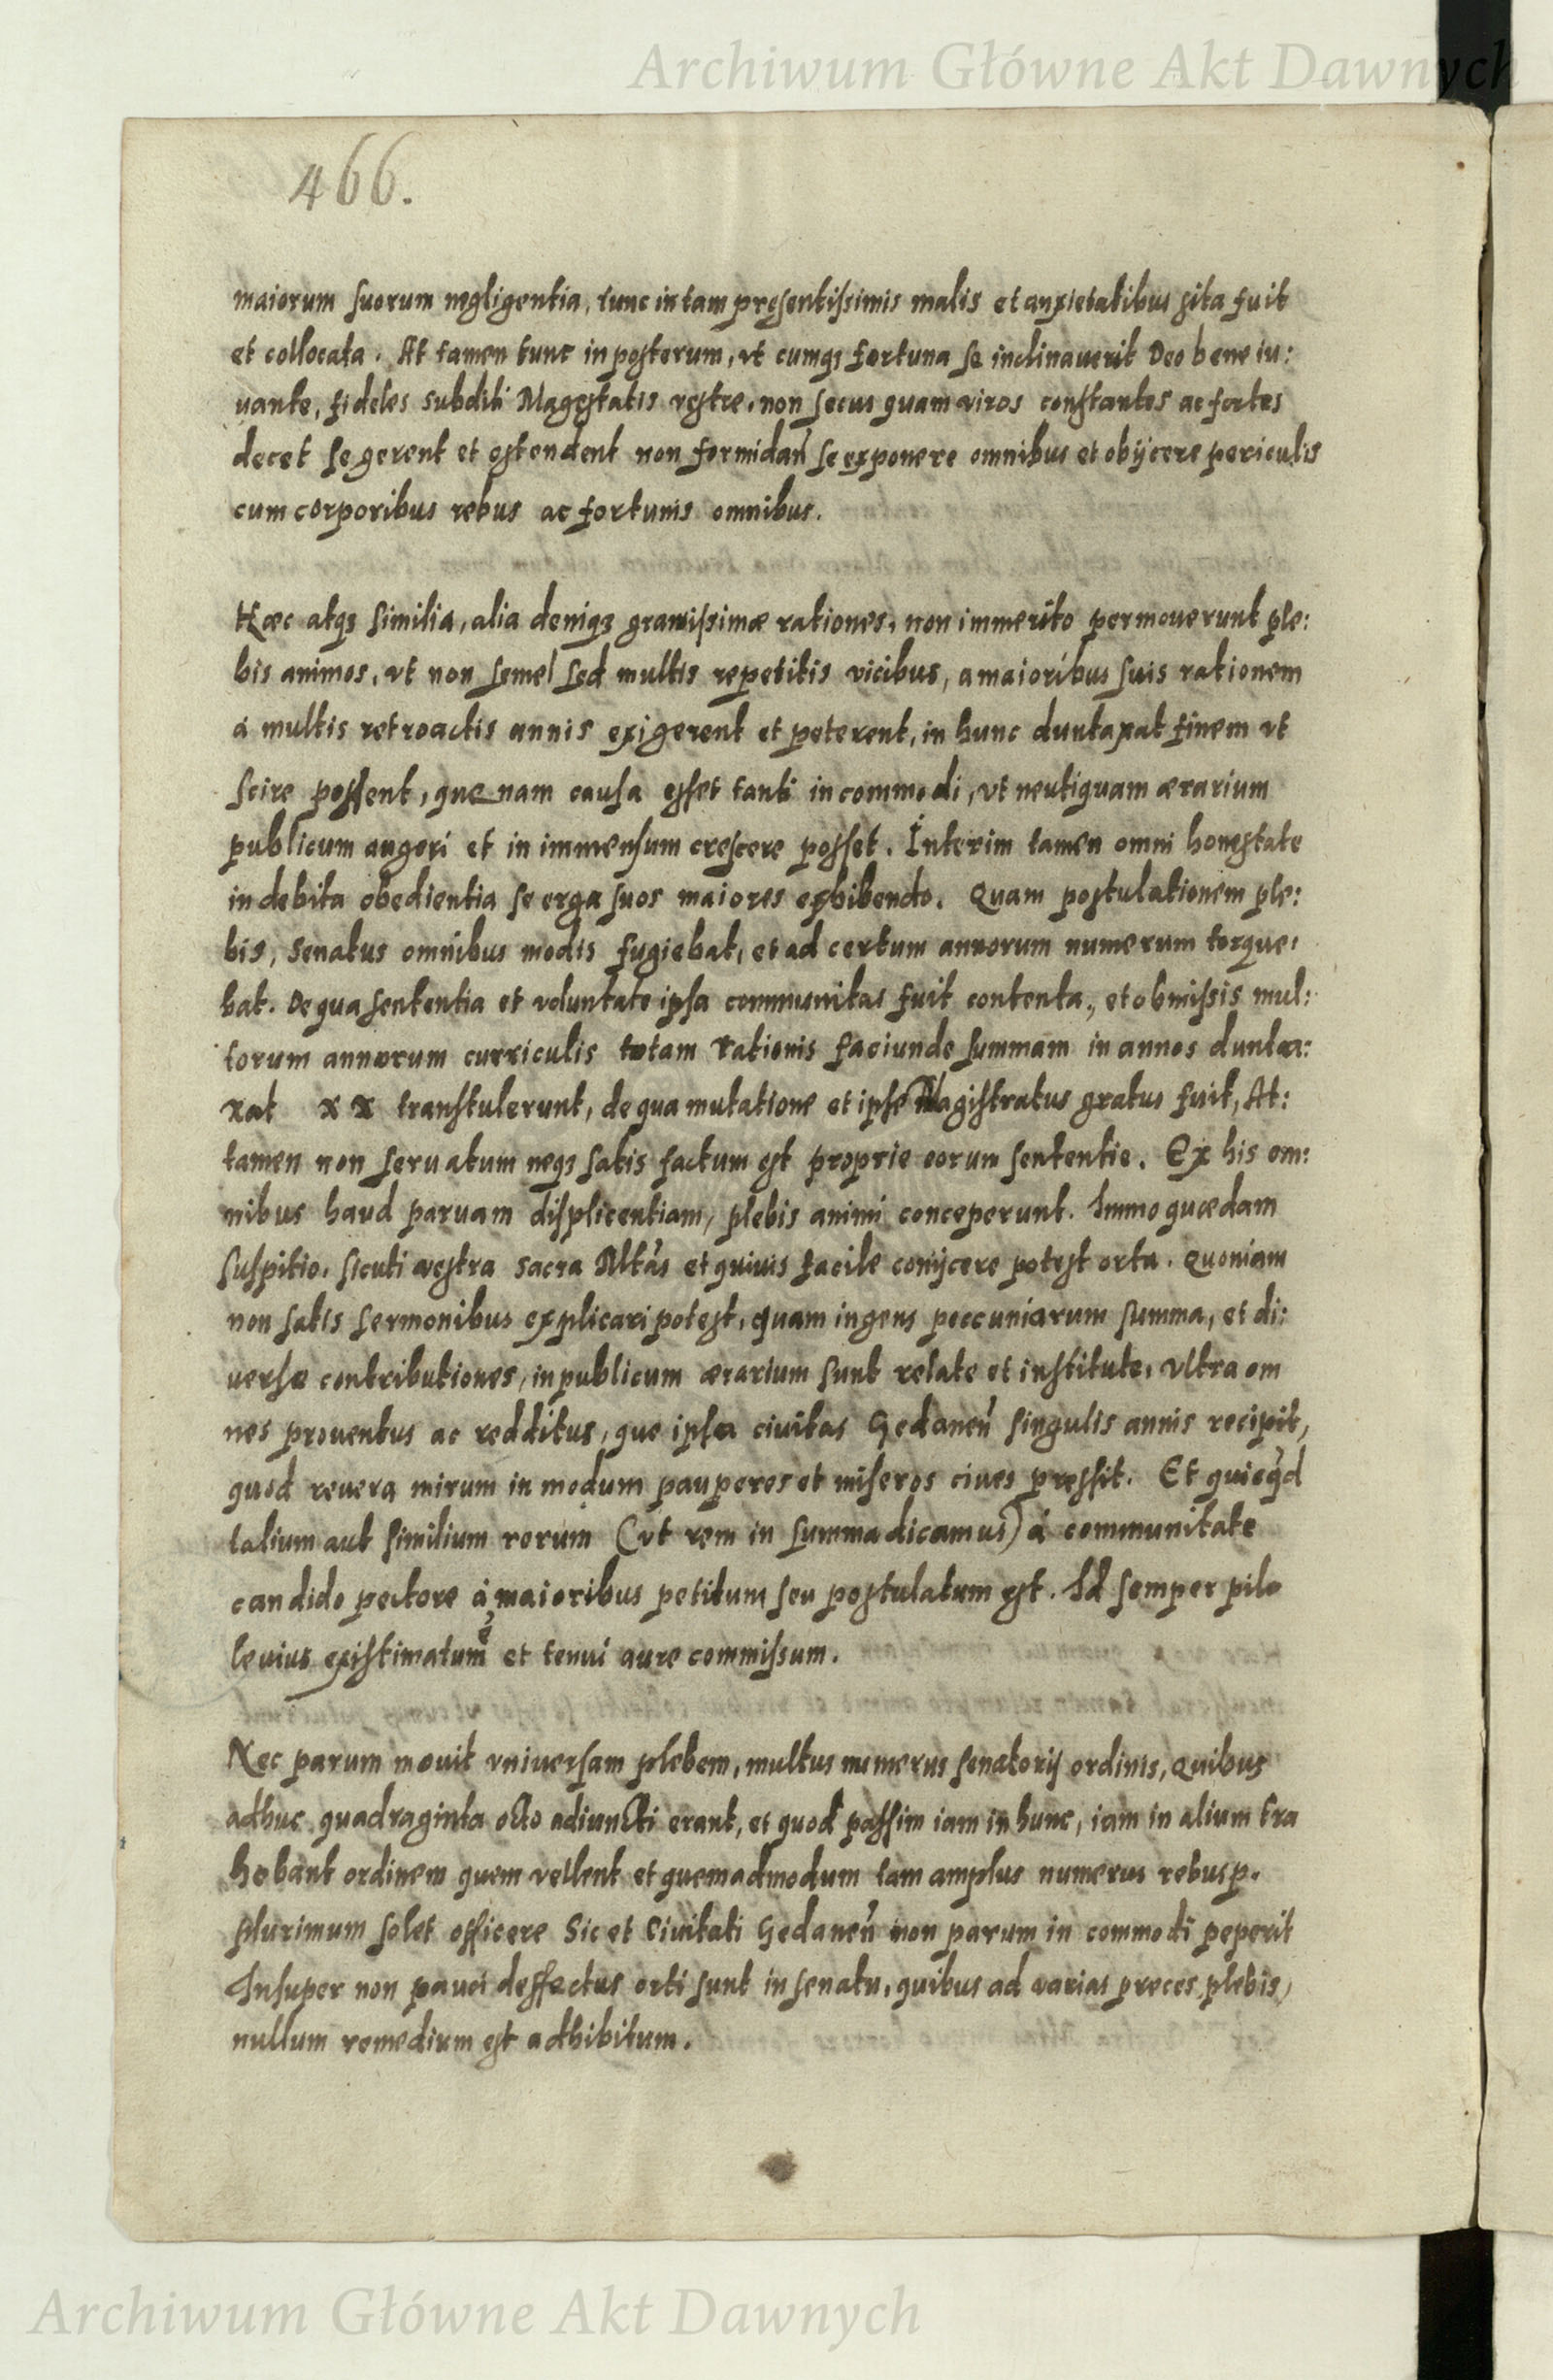 Archiwum Główne Akt Dawnych
466.
maiorum suorum negligentia, tunc in tam pręsentissimis malis et anxietatibus sita fuit
et collocata. At tamen tunc in posterum, vt cumqȝ fortuna se inclinauerit Deo bene iu:
uante, fideles subditi Magestatis vestre, non secus quam viros constantes ac fortes
decet se gerent et ostendent non formidan̄ se exponere omnibus et obijcere periculis
cum corporibus rebus ac fortunis omnibus.
Hæc atqȝ similia, alia deniqȝ grauissimæ rationes, non immerito permouerunt ple:
bis animos, vt non semel sed multis repetitis vicibus, a maioribus suis rationem
á multis retroactis annis exigerent et peterent, in hunc duntaxat finem vt
scire possent, que nam causa esset tanti incommodi, vt neutiquam ærarium
publicum augeri et in immensum crescere posset. Interim tamen omni honestate
in debita obedientia se erga suos maiores exhibendo. Quam postulationem ple:
bis, Senatus omnibus modis fugiebat, et ad certum annorum numerum torque:
bat. De qua sententia et voluntate ipsa communitas fuit contenta, et obmissis mul:
torum annorum curriculis totam rationis faciunde summam in annos dunta:
xat xx transtulerunt, de qua mutatione et ipse Magistratus gratus fuit, At:
tamen non seruatum neqȝ satis factum est proprie eorum sententie. Ex his om:
nibus haud paruam displicentiam, plebis animi conceperunt. Immo quædam
suspitio, sicuti vestra Sacra Mtās et quiuis facile conijcere potest orta. Quoniam
non satis sermonibus explicari potest, quam ingens peccuniarum summa, et di:
uersæ contributiones, in publicum ærarium sunt relate et institute, Vltra om
nes prouentus ac redditus, que ipsa ciuitas Gedanen̄ singulis annis recipit,
quod reuera mirum in modum pauperes et miseros ciues pressit. Et quicq̄d
talium aut similium rerum (vt rem in summa dicamus) á communitate
candido pectore á maioribus petitum seu postulatum est. Id semper pilo
leuius existimatum ē et tenui aure commissum.
Nec parum mouit vniuersam plebem, multus numerus senatorij ordinis, quibus
adhuc quadraginta octo adiuncti erant, et quod passim iam in hunc, iam in alium tra
hebant ordinem quem vellent et quemadmodum tam amplus numerus rebusp.
plurimum solet officere Sic et Ciuitati Gedanen̄ non parum in commodi peperit
Insuper non pauci deffectus orti sunt in senatu, quibus ad varias preces plebis,
nullum remedium est adhibitum.
Archiwum Główne Akt Dawnych